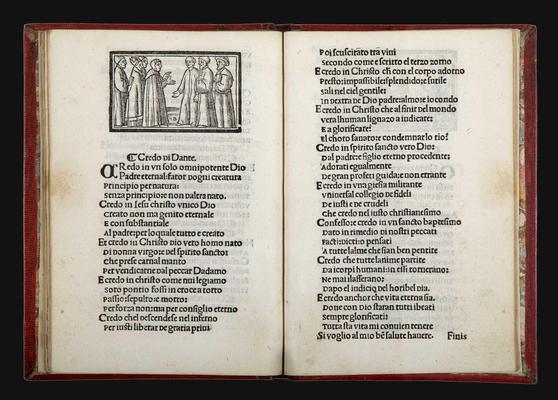 Credo di Dante.
CRedo in vn solo omnipotente Dio
Padre eternal fator dogni creatura
Principio per natura:
senza principio: e non daltra nato.
Credo in Jesu christo vnico Dio
creato non ma genito eternale
E con substantiale
Al padre per lo quale tutto e creito
Et credo in Christo Dio vero homo nato
Di donna virgo: e del spirito sancto:
che prese carnal manto
Per vendicarne dal peccar Dadamo
E credo in christo come nui legiamo
soto pontio fossi in croce a torto
Passio sepulto: e morto:
Per forza non: ma per consiglio eterno
Credo chel descendesse nel inferno
Per iusti liberar de gratia priui
Poi suscitato tra viui
Secondo come e scritto el terzo zorno
E credo in Christo ch con el corpo adorno
Presto: impassibile: splendido: e sutile
sali nel ciel gentile:
in dextra de Dio padre almo: e iocondo
E credo in Christo che al finir del mondo
vera lhuman lignazo a iudicare:
E a glorificare:
El choro sanato: e condemnar lo rio:
Credo in spirito sancto vero Dio:
Dal padre: e figlio eterno procedente:
Adorati egualmente
De gran profeti guida: e non errante
E credo in vna giesia militante
vniuersal collegio de fideli
De iusti e de crudeli
che credo nel iusto christianissimo
Confesso: e credo in vn sancto baptismo
Dato in rimedio di nostri peccati
Facti: dicti: o pensati
A tutte lalme che sian ben pentite
Credo che tutte lanime partite
Da icorpi humani: in essi tornerano:
Ne mai ilasserano:
Dapo el iudicio del horibel dia.
E credo anchor che vita eterna sia.
Doue con Dio staran tutti ibeati
sempre glorificati:
Tutta sta vita mi conuien tenere
Si voglio al mio be salute hauere. Finis